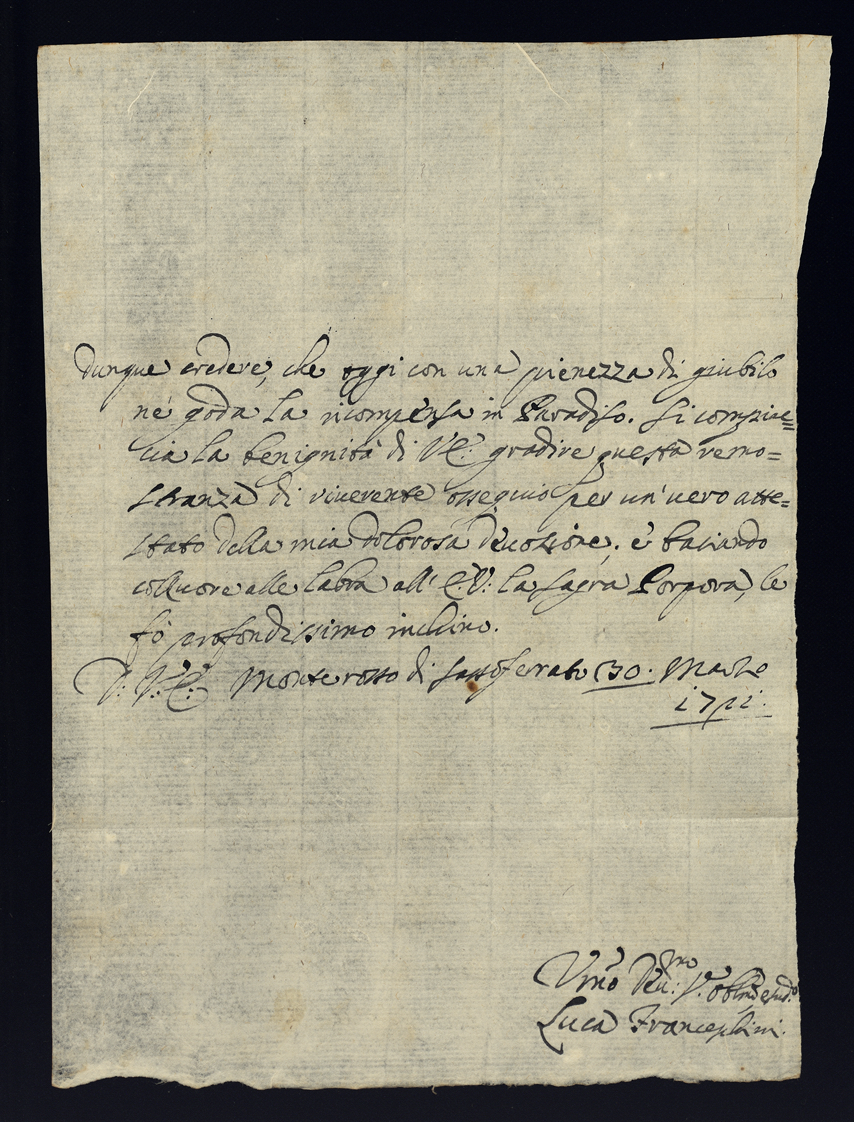 Dunque credere, che oggi con una pienezza di giubilo
ne goda la ricompensa in Paradiso. Si compiac=
cia la benignità di V.E: gradire questa remo=
stranza di riverente ossequio per un'vero atte=
stato della mia dolorosa divozione; e baciando
coll cuore alle labra all'E.V: la sagra Porpora, le
fò profondissimo inchino.
D: V: E: Monterosso di Sassoferrato 30: Marzo
1711.
Vmo Deu:mo S.
Luca Franceschini.